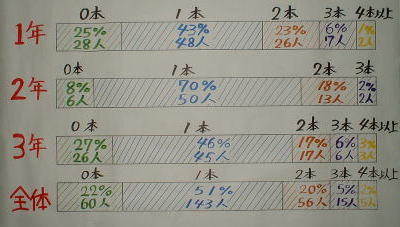 0本 1本 2本 3本 4本以上
1年 25% 43% 23% 6% 1%
28人 48人 26人 7人 2人
0本 1本 2本 3本
2年 8% 70% 18% 2%
6人 50人 13人 2人
0本 1本 2本 3本 4本以上
3年 27% 46% 17% 6% 3%
26人 45人 17人 6人 3人
0本 1本 2本 3本 4本以上
全体 22% 51% 20% 5% 1%
60人 143人 56人 15人 5人